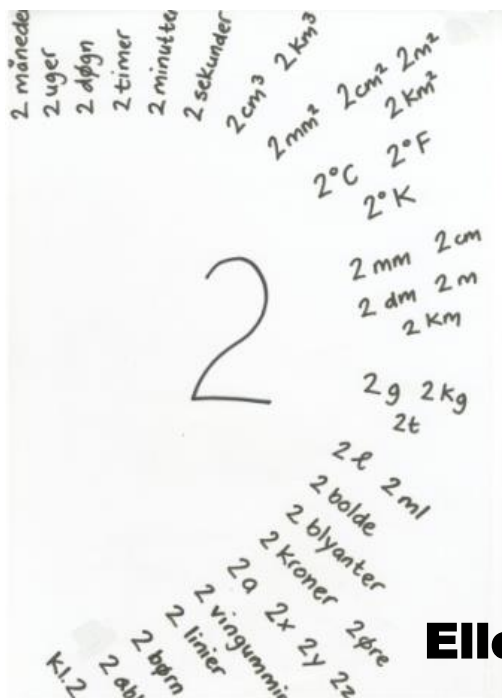 2 måneder
2 uger
2 døgn
2 timer
2 minutter
2 sekunder
2 cm³ 2 km³
2 mm² 2 cm² 2 m²
2 km²
2°C 2°F
2°K
2 mm 2 cm
2 dm 2 m
2 km
2
2 g 2 kg
2t
2 l 2 ml
2 bolde
2 blyanter
2 kroner 2 øre
2a 2x 2y
2 linier
2 børn
kl. 2